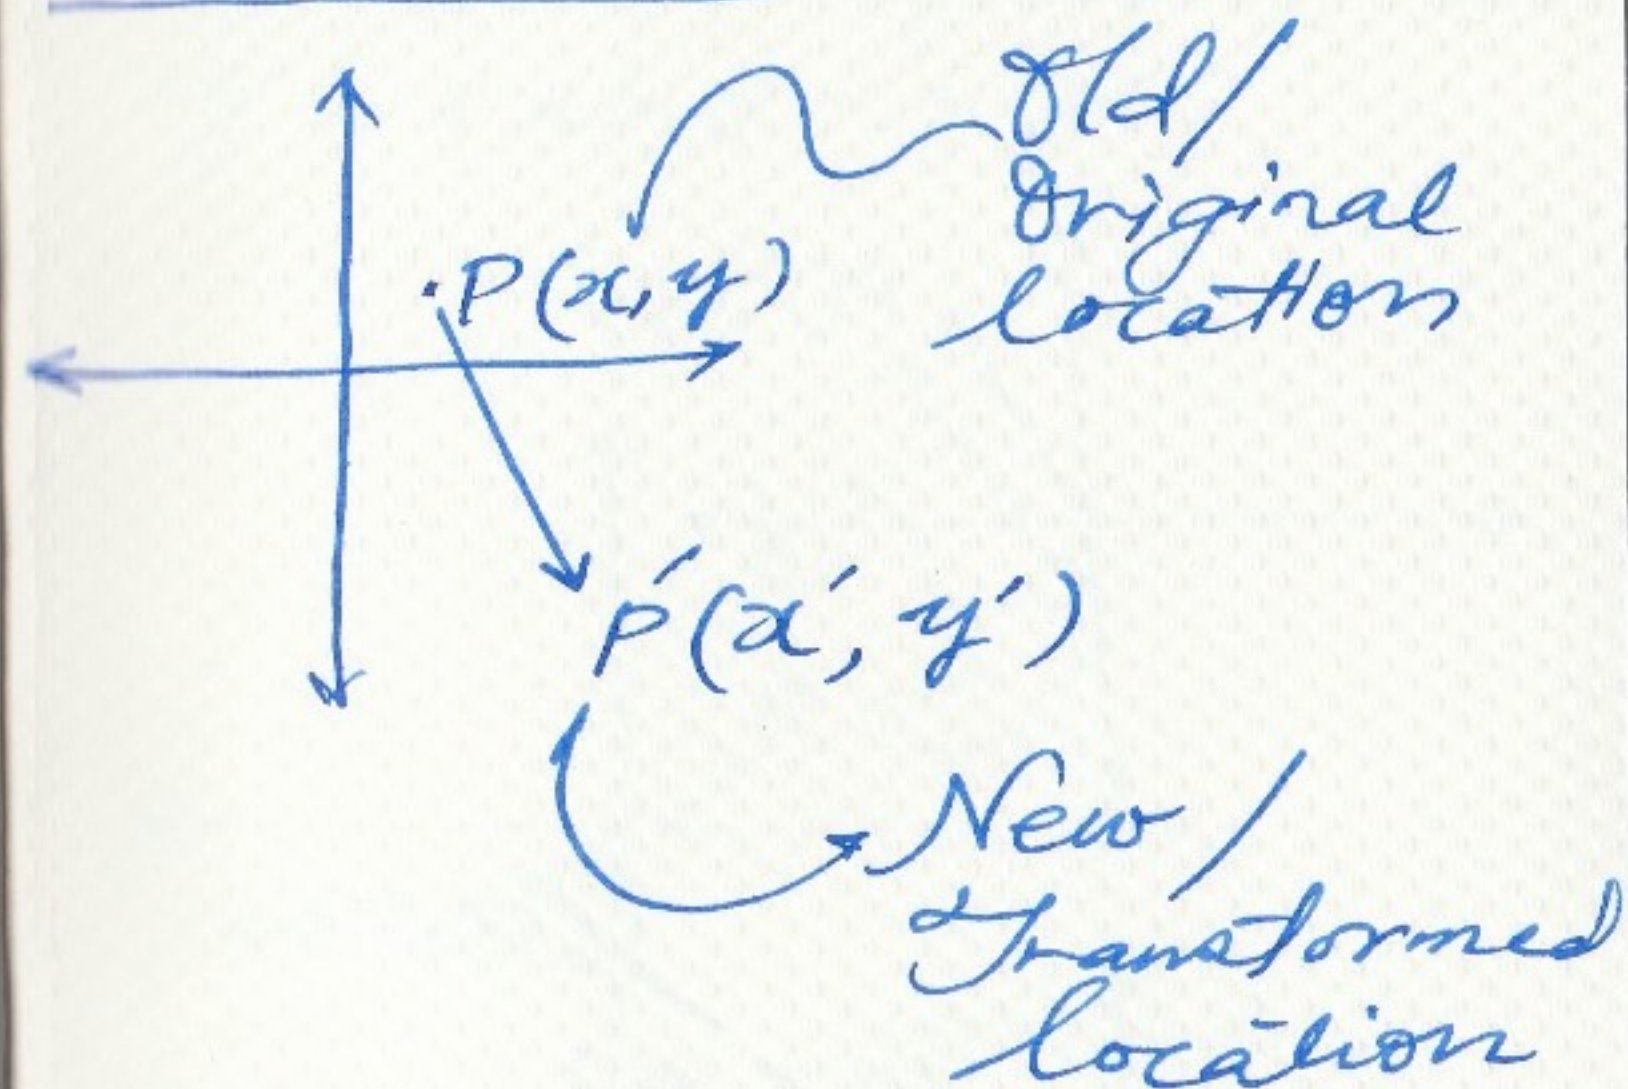 Old/
Original
location
P(x,y)
P'(x', y')
New/
Transformed
location